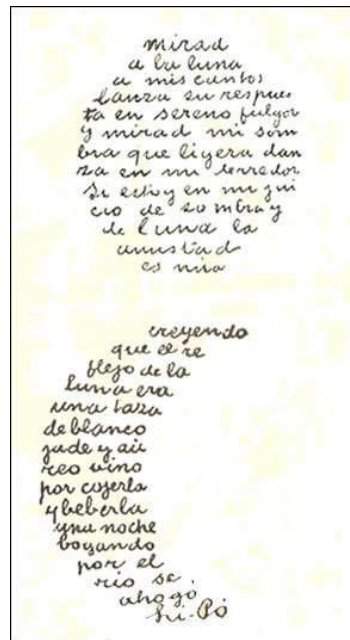 mirad
a la luna
a mis cantos
lanza su respues
ta en sereno fulgor
y mirad mi som
bra que ligera dan
za en mi derredor
si estoy en mi jui
cio de sombra y
de luna la
amistad
es mia
creyendo
que el re
flejo de la
luna era
una taza
de blanco
jade y au
reo vino
por cojerla
y beberla
una noche
bogando
por el
rio se
ahogó
Li-Pó